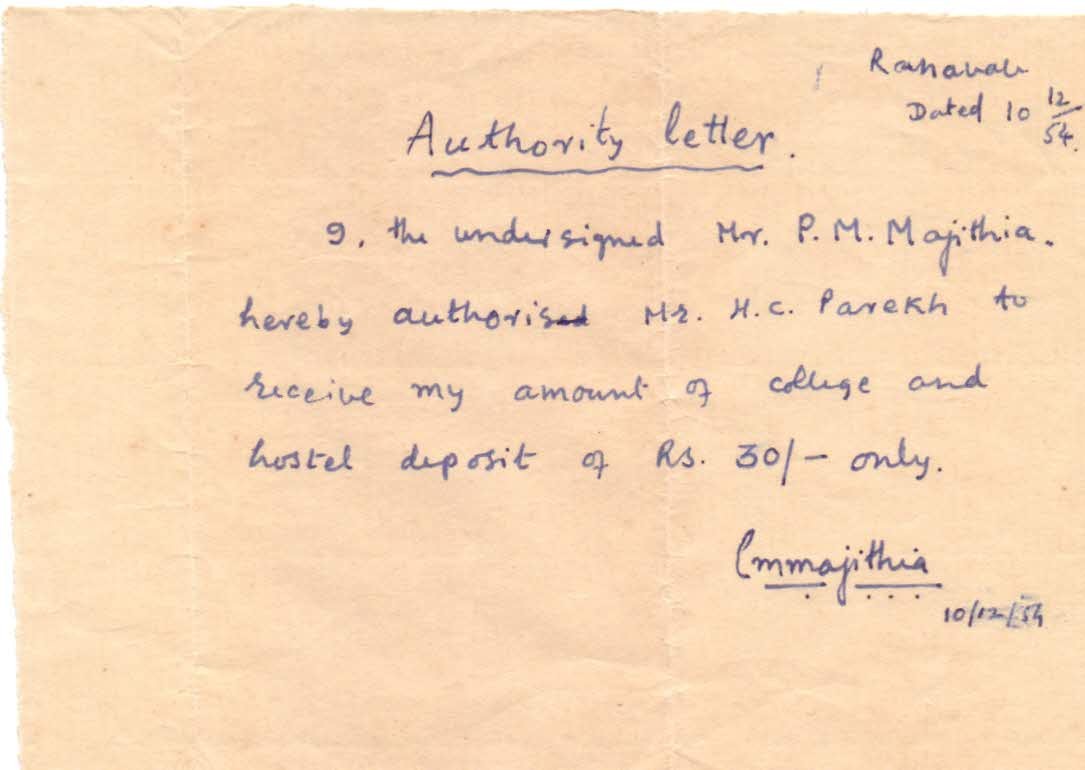 Ranavav
Dated 10 12/54.
Authority letter.
I, the undersigned Mr. P. M. Majithia.
hereby authorised Mr. H.C. Parekh to
receive my amount of college and
hostel deposit of Rs. 30/- only.
Pmmajithia
10/12/54